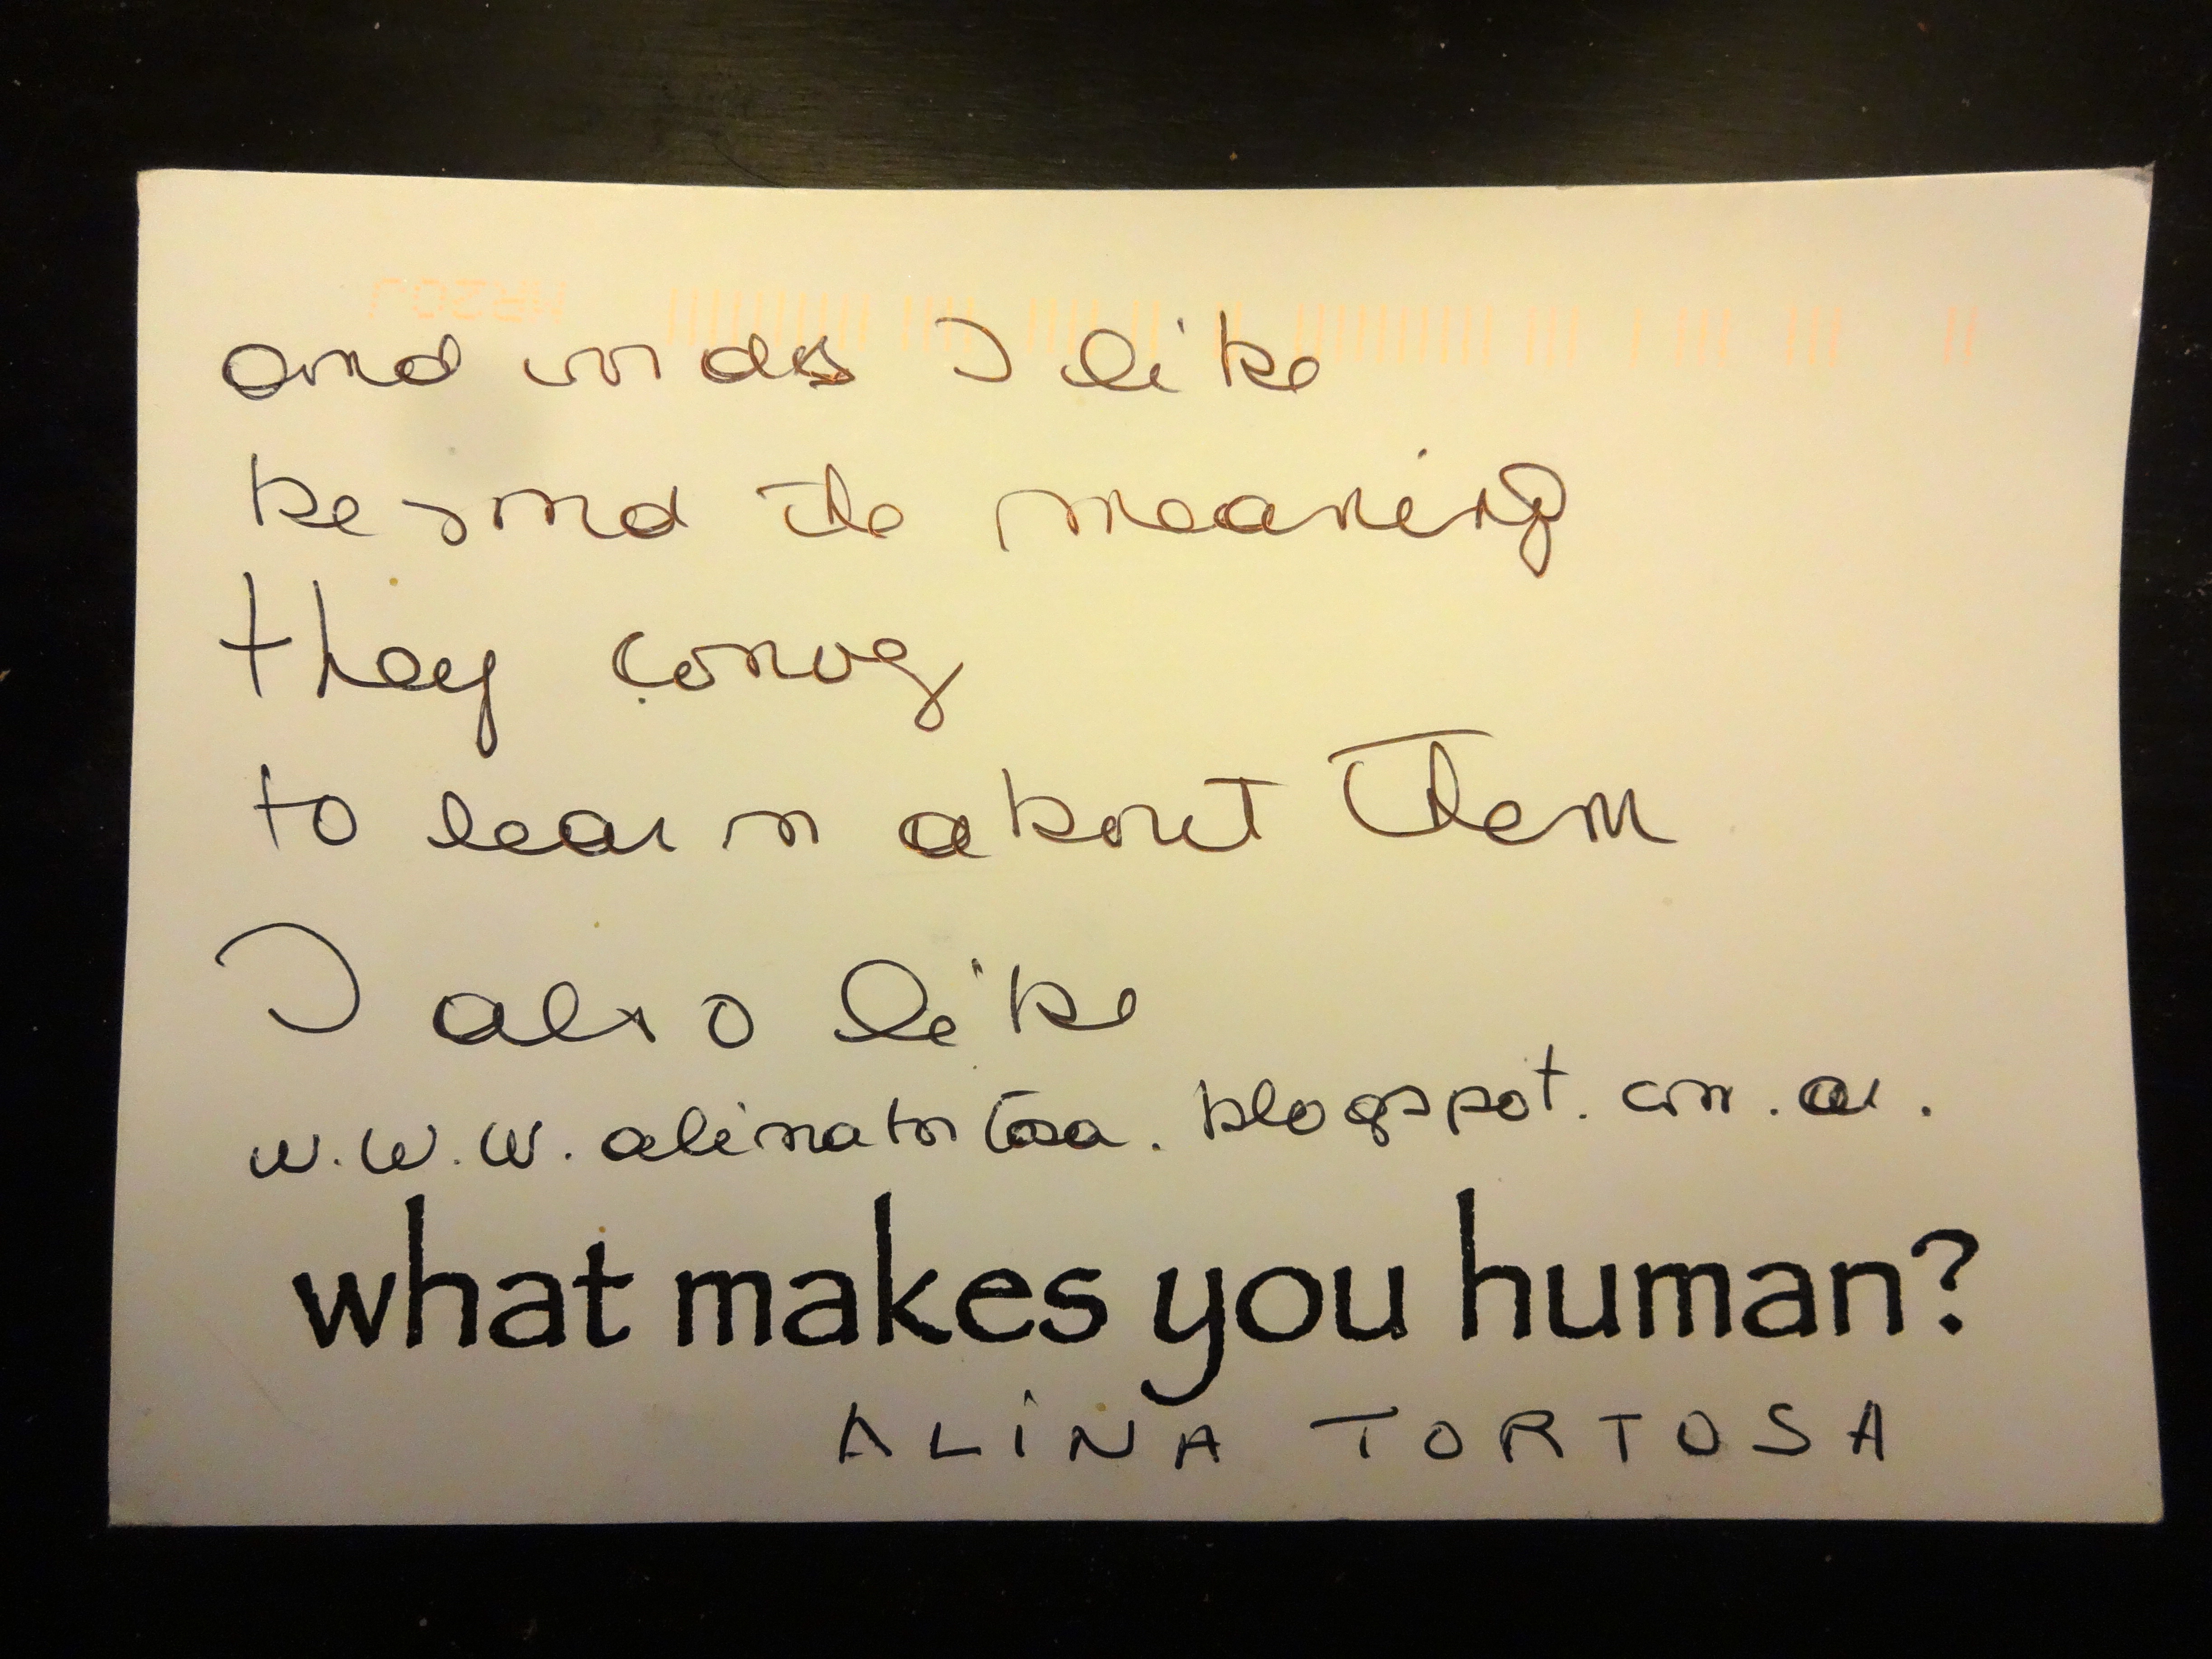 and words I like
beyond the meaning
they convey
to learn about them
I also like
w.w.w.alinatortosa.blogspot.com.ar.
what makes you human?
ALINA TORTOSA